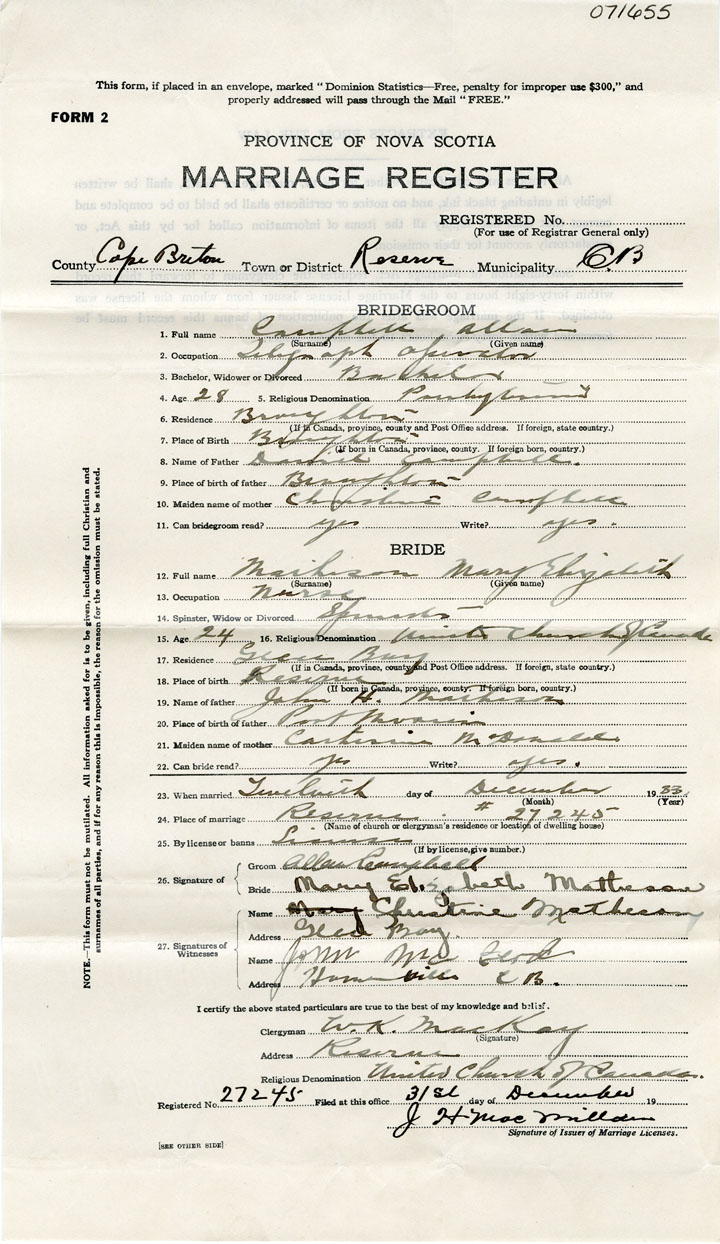 071655
This form, if placed in an envelope, marked "Dominion Statistics—Free, penalty for improper use $300," and
properly addressed will pass through the Mail "FREE."
FORM 2
PROVINCE OF NOVA SCOTIA
MARRIAGE REGISTER
REGISTERED No.
(For use of Registrar General only)
County Cape Breton Town or District Reserve Municipality C.B
BRIDEGROOM
1. Full name Campbell Allan
(Surname) (Given name)
2. Occupation Telegraph Operator
3. Bachelor, Widower or Divorced Bachelor
4. Age 28 5. Religious Denomination
6. Residence Broughton
(If in Canada, province, county and Post Office address. If foreign, state country.)
7. Place of Birth Broughton
(If born in Canada, province, county. If foreign born, country.)
8. Name of Father Campbell.
9. Place of birth of father Broughton
10. Maiden name of mother Christine Campbell
11. Can bridegroom read? yes Write? yes.
BRIDE
12. Full name Mathison Mary Elizabeth
(Surname) (Given name)
13. Occupation Nurse
14. Spinster, Widow or Divorced
15. Age 24 16. Religious Denomination United Church of Canada
17. Residence Glace Bay
(If in Canada, province, county and Post Office address. If foreign, state country.)
18. Place of birth Reserve
(If born in Canada, province, county. If foreign born, country.)
19. Name of father John H. Mathison
20. Place of birth of father Port Morien
21. Maiden name of mother Catherine McDonald
22. Can bride read? yes Write? yes.
23. When married day of December 1933.
(Month) (Year)
24. Place of marriage Reserve. # 27245
(Name of church or clergyman's residence or location of dwelling house)
25. By license or banns
(If by license, give number.)
26. Signature of
Groom Allan Campbell
Bride Mary Elizabeth Matheson
27. Signatures of Witnesses
Name Christine Matheson
Address Glace Bay
Name John
Address C B.
I certify the above stated particulars are true to the best of my knowledge and belief.
Clergyman W. K. MacKay
(Signature)
Address Reserve
Religious Denomination United Church of Canada.
Registered No. 27245 Filed at this office 31st day of December 19
J H MacMillan
Signature of Issuer of Marriage Licenses.
[SEE OTHER SIDE]
NOTE.—This form must not be mutilated. All information asked for is to be given, including full Christian and
surnames of all parties, and if for any reason this is impossible, the reason for the omission must be stated.